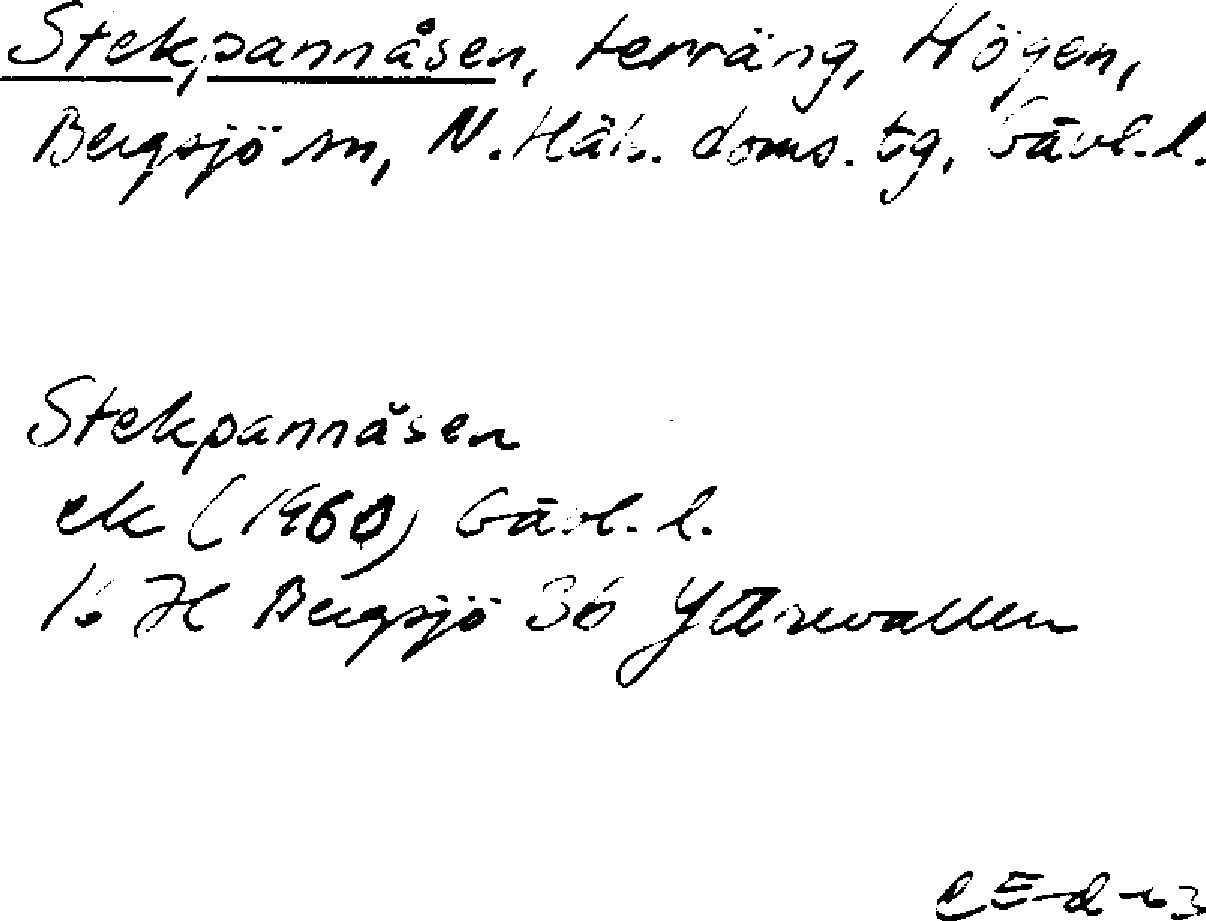 Stekpannåsen, terräng, Högen,
Bergsjö sn, N. Häls. doms. tg, Gävl. l.
Stekpannåsen
ek (1960) Gävl. l.
16 H Bergsjö 3b